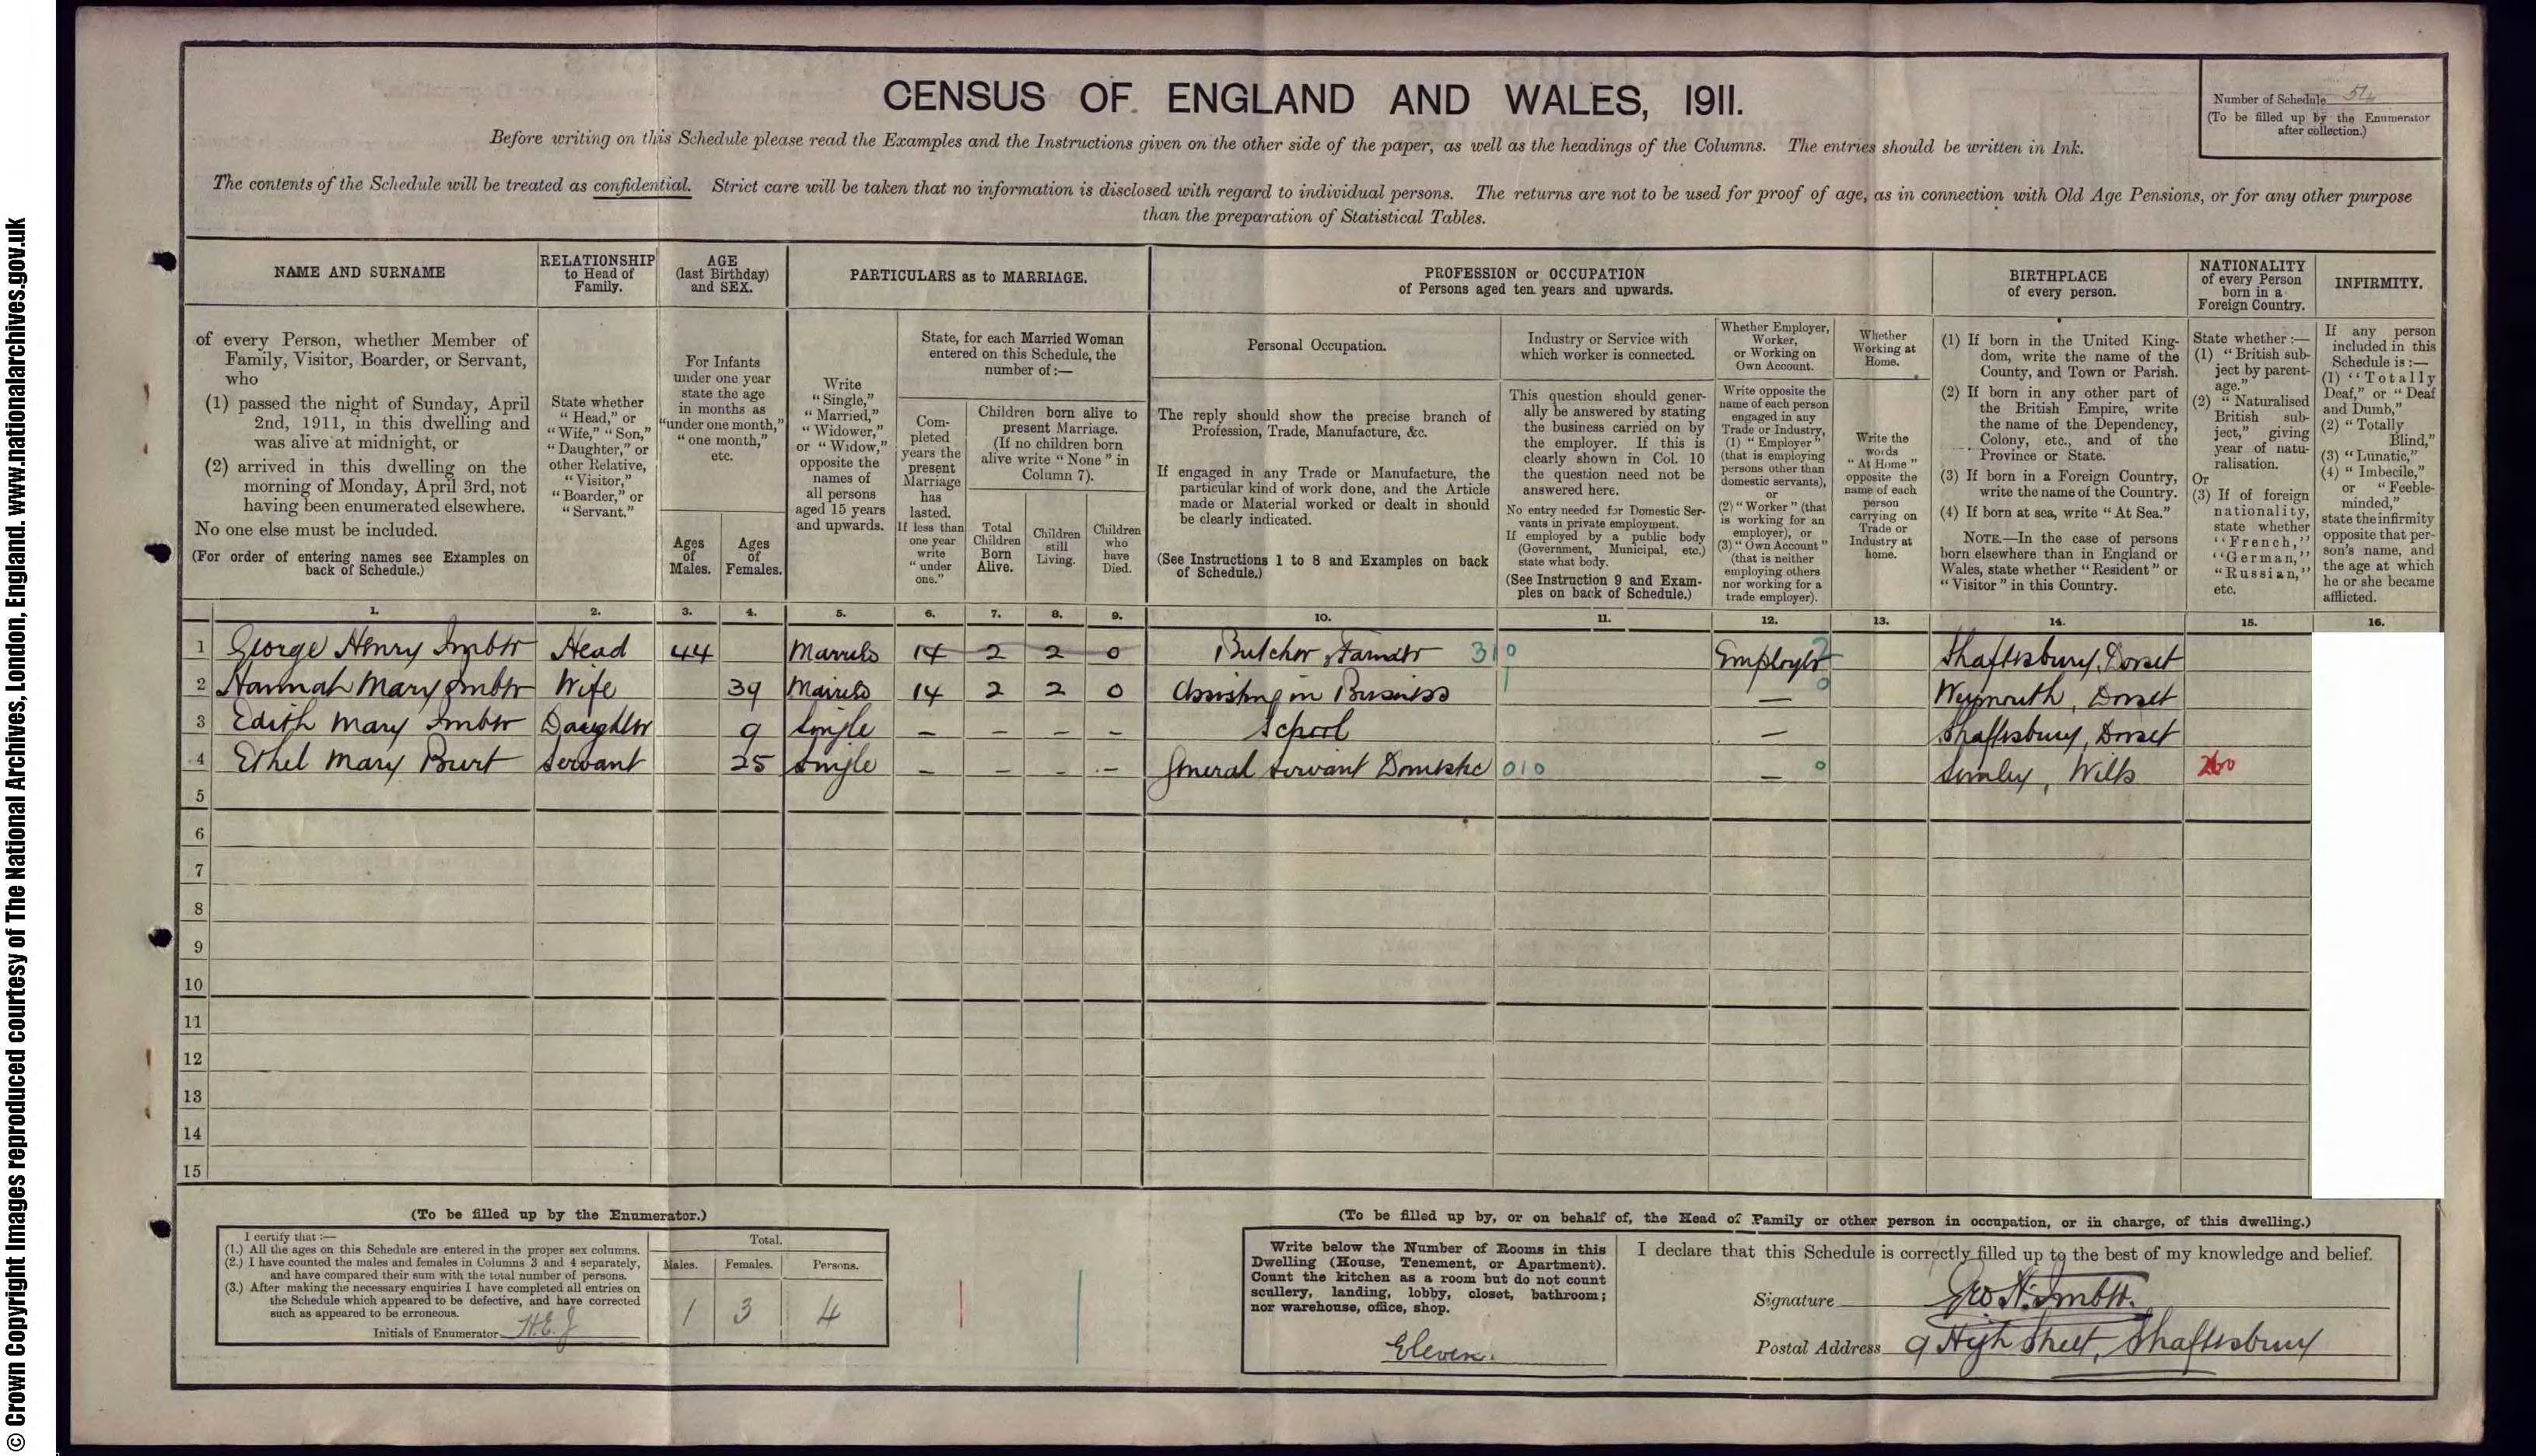 © Crown Copyright Images reproduced courtesy of The National Archives, London, England. www.nationalarchives.gov.uk
CENSUS OF ENGLAND AND WALES, 1911.
Number of Schedule 54
(To be filled up by the Enumerator
after collection.)
Before writing on this Schedule please read the Examples and the Instructions given on the other side of the paper, as well as the headings of the Columns. The entries should be written in Ink.
The contents of the Schedule will be treated as confidential. Strict care will be taken that no information is disclosed with regard to individual persons. The returns are not to be used for proof of age, as in connection with Old Age Pensions, or for any other purpose
than the preparation of Statistical Tables.
NAME AND SURNAME
of every Person, whether Member of
Family, Visitor, Boarder, or Servant,
who
(1) passed the night of Sunday, April
2nd, 1911, in this dwelling and
was alive at midnight, or
(2) arrived in this dwelling on the
morning of Monday, April 3rd, not
having been enumerated elsewhere.
No one else must be included.
(For order of entering names see Examples on
back of Schedule.)
RELATIONSHIP
to Head of
Family.
State whether
"Head," or
"Wife," "Son,"
"Daughter," or
other Relative,
"Visitor,"
"Boarder," or
"Servant."
AGE
(last Birthday)
and SEX.
For Infants
under one year
state the age
in months as
"under one month,"
"one month,"
etc.
Ages
of
Males.
Ages
of
Females.
PARTICULARS as to MARRIAGE.
Write
"Single,"
"Married,"
"Widower,"
or "Widow,"
opposite the
names of
all persons
aged 15 years
and upwards.
State, for each Married Woman
entered on this Schedule, the
number of:—
Com-
pleted
years the
present
Marriage
has
lasted.
If less than
one year
write
"under
one."
Children born alive to
present Marriage.
(If no children born
alive write "None" in
Column 7).
Total
Children
Born
Alive.
Children
still
Living.
Children
who
have
Died.
PROFESSION or OCCUPATION
of Persons aged ten years and upwards.
Personal Occupation.
The reply should show the precise branch of
Profession, Trade, Manufacture, &c.
If engaged in any Trade or Manufacture, the
particular kind of work done, and the Article
made or Material worked or dealt in should
be clearly indicated.
(See Instructions 1 to 8 and Examples on back
of Schedule.)
Industry or Service with
which worker is connected.
This question should gener-
ally be answered by stating
the business carried on by
the employer. If this is
clearly shown in Col. 10
the question need not be
answered here.
No entry needed for Domestic Ser-
vants in private employment.
If employed by a public body
(Government, Municipal, etc.)
state what body.
(See Instruction 9 and Exam-
ples on back of Schedule.)
Whether Employer,
Worker,
or Working on
Own Account.
Write opposite the
name of each person
engaged in any
Trade or Industry,
(1) "Employer"
(that is employing
persons other than
domestic servants),
or
(2) "Worker" (that
is working for an
employer), or
(3) "Own Account"
(that is neither
employing others
nor working for a
trade employer).
Whether
Working at
Home.
Write the
words
"At Home"
opposite the
name of each
person
carrying on
Trade or
Industry at
home.
BIRTHPLACE
of every person.
(1) If born in the United King-
dom, write the name of the
County, and Town or Parish.
(2) If born in any other part of
the British Empire, write
the name of the Dependency,
Colony, etc., and of the
Province or State.
(3) If born in a Foreign Country,
write the name of the Country.
(4) If born at sea, write "At Sea."
NOTE.—In the case of persons
born elsewhere than in England or
Wales, state whether "Resident" or
"Visitor" in this Country.
NATIONALITY
of every Person
born in a
Foreign Country.
State whether:—
(1) "British sub-
ject by parent-
age."
(2) "Naturalised
British sub-
ject," giving
year of natu-
ralisation.
Or
(3) If of foreign
nationality,
state whether
"French,"
"German,"
"Russian,"
etc.
INFIRMITY.
If any person
included in this
Schedule is:—
(1) "Totally
Deaf," or "Deaf
and Dumb,"
(2) "Totally
Blind,"
(3) "Lunatic,"
(4) "Imbecile,"
or "Feeble-
minded,"
state the infirmity
opposite that per-
son's name, and
the age at which
he or she became
afflicted.
1. 2. 3. 4. 5. 6. 7. 8. 9. 10. 11. 12. 13. 14. 15. 16.
1 George Henry Imber Head 44 Married 14 2 2 0 Butcher, Farmer 310 Employer Shaftesbury, Dorset
2 Hannah Mary Imber Wife 39 Married 14 2 2 0 Assisting in Business — 0 Weymouth, Dorset
3 Edith Mary Imber Daughter 9 Single — — — — School — Shaftesbury, Dorset
4 Ethel Mary Burt Servant 25 Single — — — — General Servant Domestic 010 — 0 Semley, Wilts 260
5
6
7
8
9
10
11
12
13
14
15
(To be filled up by the Enumerator.)
I certify that:—
(1.) All the ages on this Schedule are entered in the proper sex columns.
(2.) I have counted the males and females in Columns 3 and 4 separately,
and have compared their sum with the total number of persons.
(3.) After making the necessary enquiries I have completed all entries on
the Schedule which appeared to be defective, and have corrected
such as appeared to be erroneous.
Initials of Enumerator H.E.J
Total.
Males. Females. Persons.
1 3 4
(To be filled up by, or on behalf of, the Head of Family or other person in occupation, or in charge, of this dwelling.)
Write below the Number of Rooms in this
Dwelling (House, Tenement, or Apartment).
Count the kitchen as a room but do not count
scullery, landing, lobby, closet, bathroom;
nor warehouse, office, shop.
Eleven.
I declare that this Schedule is correctly filled up to the best of my knowledge and belief.
Signature Geo H. Imber.
Postal Address 9 High Street, Shaftesbury